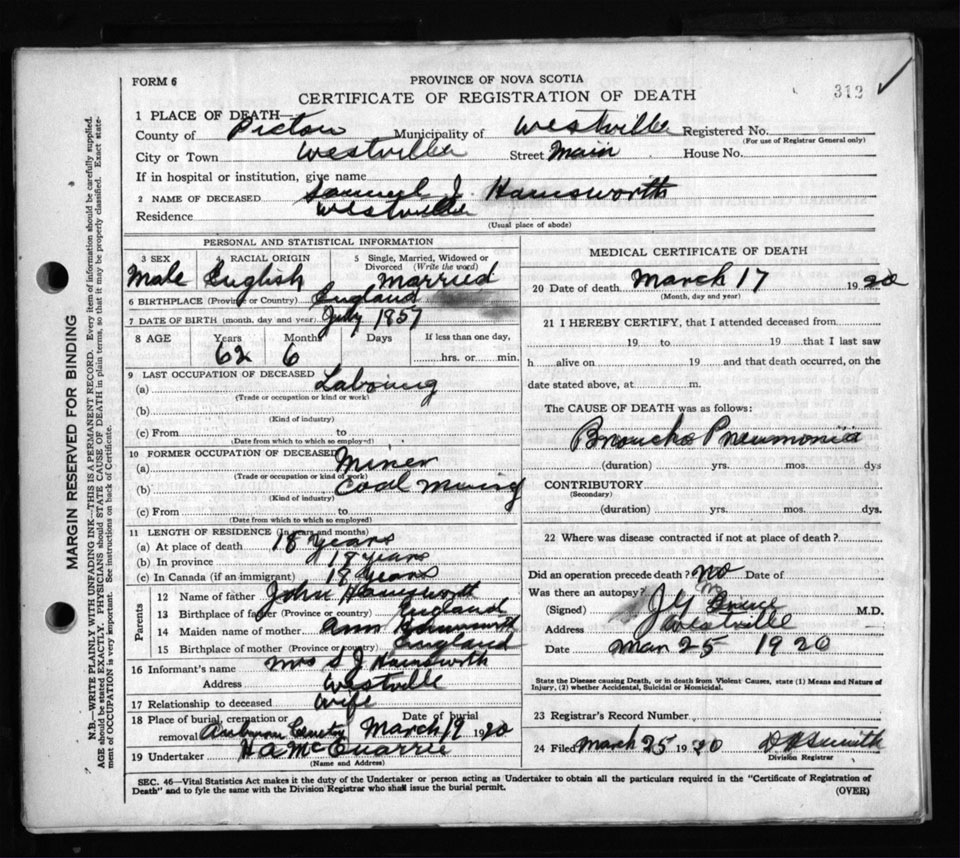 FORM 6
PROVINCE OF NOVA SCOTIA
CERTIFICATE OF REGISTRATION OF DEATH
312 ✓
1 PLACE OF DEATH—
County of Pictou Municipality of Westville Registered No.
(For use of Registrar General only)
City or Town Westville Street Main House No.
If in hospital or institution, give name
2 NAME OF DECEASED Samuel J. Hainsworth
Residence Westville
(Usual place of abode)
PERSONAL AND STATISTICAL INFORMATION
3 SEX 4 RACIAL ORIGIN 5 Single, Married, Widowed or Divorced (Write the word)
Male English Married
6 BIRTHPLACE (Province or Country) England
7 DATE OF BIRTH (month, day and year) July 1857
8 AGE Years Months Days If less than one day,
62 6 hrs. or min.
9 LAST OCCUPATION OF DECEASED
(a) Laboring
(Trade or occupation or kind of work)
(b)
(Kind of industry)
(c) From to
(Date from which to which so employed)
10 FORMER OCCUPATION OF DECEASED
(a) Miner
(Trade or occupation or kind of work)
(b) Coal Mining
(Kind of industry)
(c) From to
(Date from which to which so employed)
11 LENGTH OF RESIDENCE (In years and months)
(a) At place of death 18 years
(b) In province 18 years
(c) In Canada (if an immigrant) 18 years
Parents
12 Name of father John Hainsworth
13 Birthplace of father (Province or country) England
14 Maiden name of mother Ann Hainsworth
15 Birthplace of mother (Province or country) England
16 Informant's name Mrs S J Hainsworth
Address Westville
17 Relationship to deceased Wife
18 Place of burial, cremation or removal Auburn Cemetry Date of burial March 19 1920
19 Undertaker H A McQuarrie
(Name and Address)
MEDICAL CERTIFICATE OF DEATH
20 Date of death March 17 1920
(Month, day and year)
21 I HEREBY CERTIFY, that I attended deceased from
19 to 19 that I last saw
h alive on 19 and that death occurred, on the
date stated above, at m.
The CAUSE OF DEATH was as follows:
Broncho Pneumonia
(duration) yrs. mos. dys
CONTRIBUTORY
(Secondary)
(duration) yrs. mos. dys.
22 Where was disease contracted if not at place of death?
Did an operation precede death? no Date of
Was there an autopsy? no
(Signed) J G M.D.
Address Westville
Date Mar 25 1920
State the Disease causing Death, or in death from Violent Causes, state (1) Means and Nature of
Injury, (2) whether Accidental, Suicidal or Homicidal.
23 Registrar's Record Number
24 Filed March 25 1920 D Smith
Division Registrar
SEC. 46—Vital Statistics Act makes it the duty of the Undertaker or person acting as Undertaker to obtain all the particulars required in the "Certificate of Registration of
Death" and to fyle the same with the Division Registrar who shall issue the burial permit.
(OVER)
MARGIN RESERVED FOR BINDING
N.B.—WRITE PLAINLY WITH UNFADING INK—THIS IS A PERMANENT RECORD. Every item of information should be carefully supplied.
AGE should be stated EXACTLY. PHYSICIANS should STATE CAUSE OF DEATH in plain terms, so that it may be properly classified. Exact state-
ment of OCCUPATION is very important. See instructions on back of Certificate.